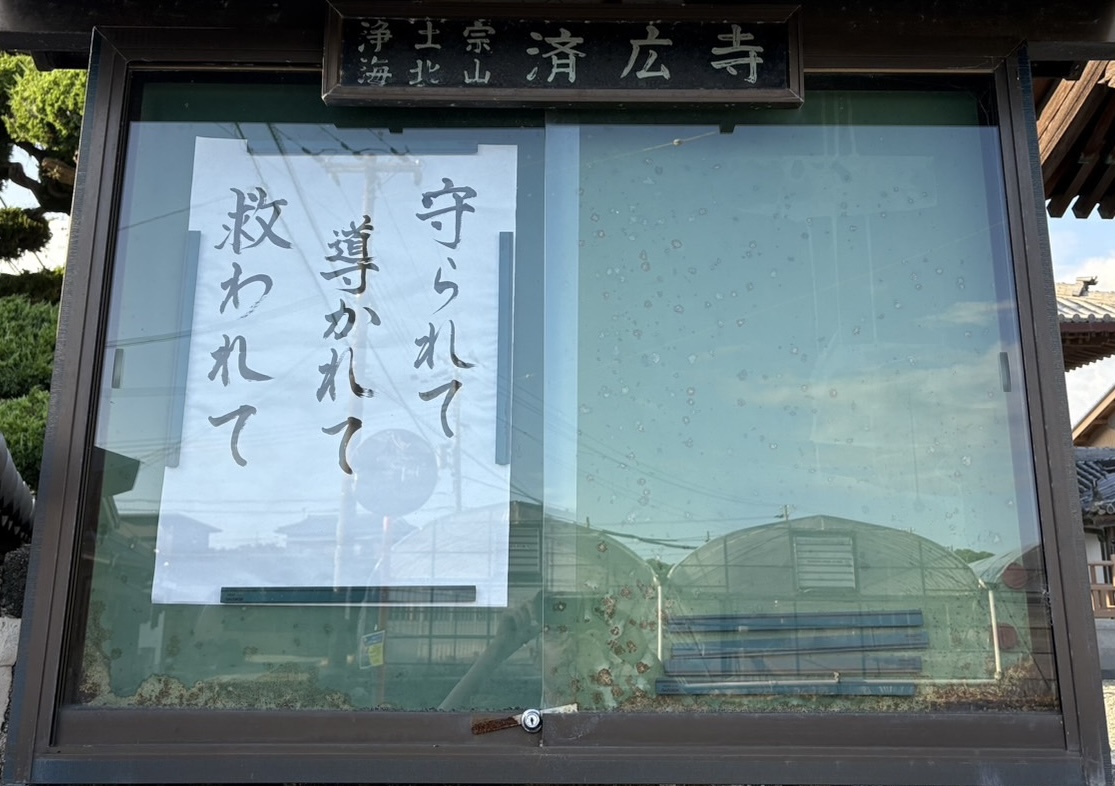 浄土宗
海北山
済広寺
守られて
導かれて
救われて